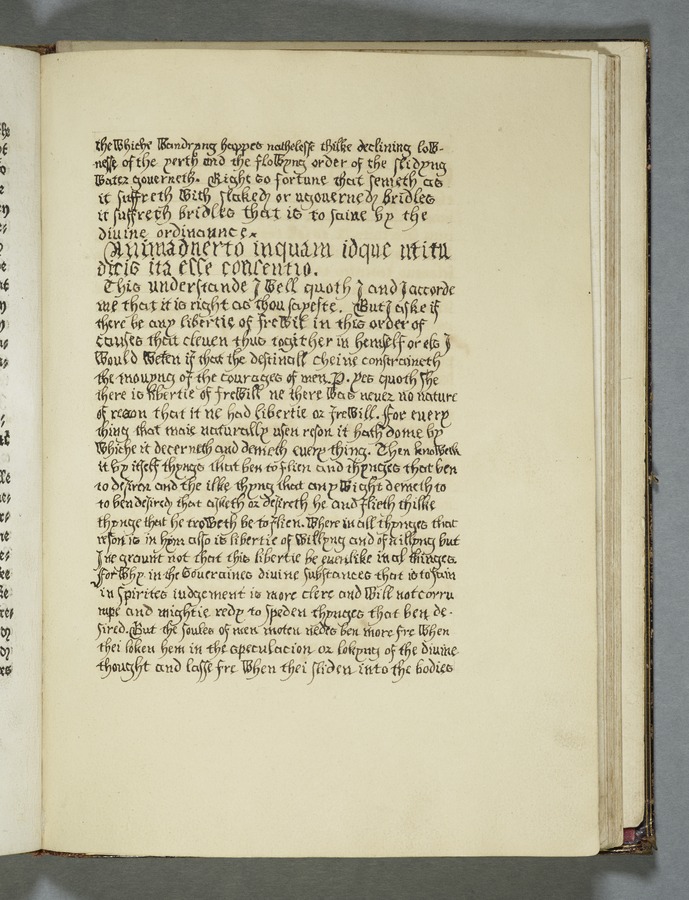 the Whiche Wandryng happes nathelesse thilke declining low-
nesse of the yerth and the flowyng order of the slidyng
Water gouerneth. Right so fortune that semeth as
it suffreth With slaked or ugouerned bridles
it suffreth bridles that is to saine by the
diuine ordinaunce
Animaduerto inquam idque uti tu
dicis ita esse consentio.
This understande I Well quoth I and I accorde
me that it is right as thou sayeste. But I aske if
there be any libertie of freWil in this order of
causes that cleuen thus togither in hemself or els I
Would Weten if that the destinall cheine constraineth
the mouyng of the courages of men. P. yes quoth she
there is libertie of freWill ne there Was neuer no nature
of reson that it ne had libertie or freWill. For euery
thing that maie naturally usen reson it hath dome by
Whiche it decerneth and demeth euery thing. Then knoWeth
it by itself thynges that ben to flien and thynges that ben
to desiren and the ilke thyng that any Wight demeth to
to ben desired that asketh or desireth he and flieth thilke
thynge that he troWeth be to flien. Where in all thynges that
reson is in hym also is libertie of Willyng and of nillyng but
I ne graunt not that this libertie be euenlike in al thinges.
ForWhy in the Soueraines diuine substances that is to sain
in spirites iudgement is more clere and Will not corru
mpe and mightie redy to speden thynges that ben de-
sired. But the soules of men moten nedes ben more fre When
thei loken hem in the speculacion or lokyng of the diuine
thought and lasse fre When thei sliden into the bodies